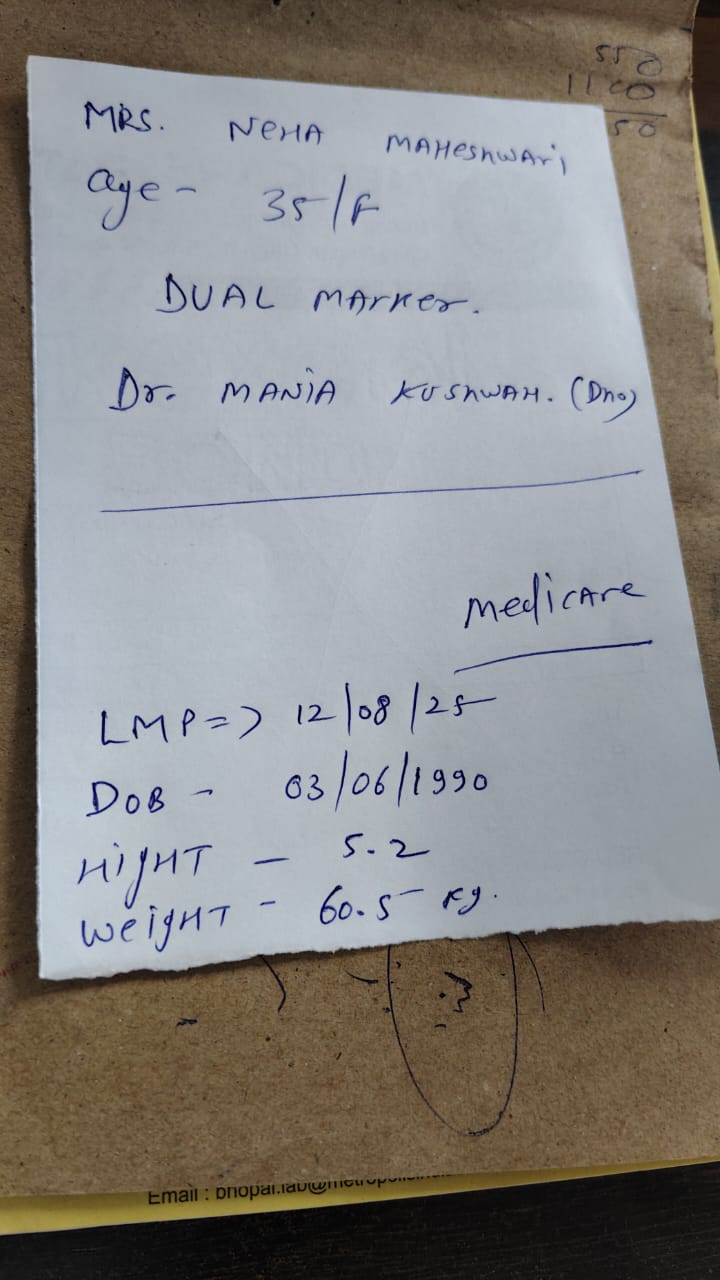 550
1100
50
MRS. NeHA MAHeshwAri
Age - 35/F
DUAL MArker.
Dr. MANJA KUShwAH. (Dho)
MedicAre
LMP => 12/08/25
DOB - 03/06/1990
HigHT - 5.2
WeigHT - 60.5 kg.
Email : bhopal.lab@metropolisind